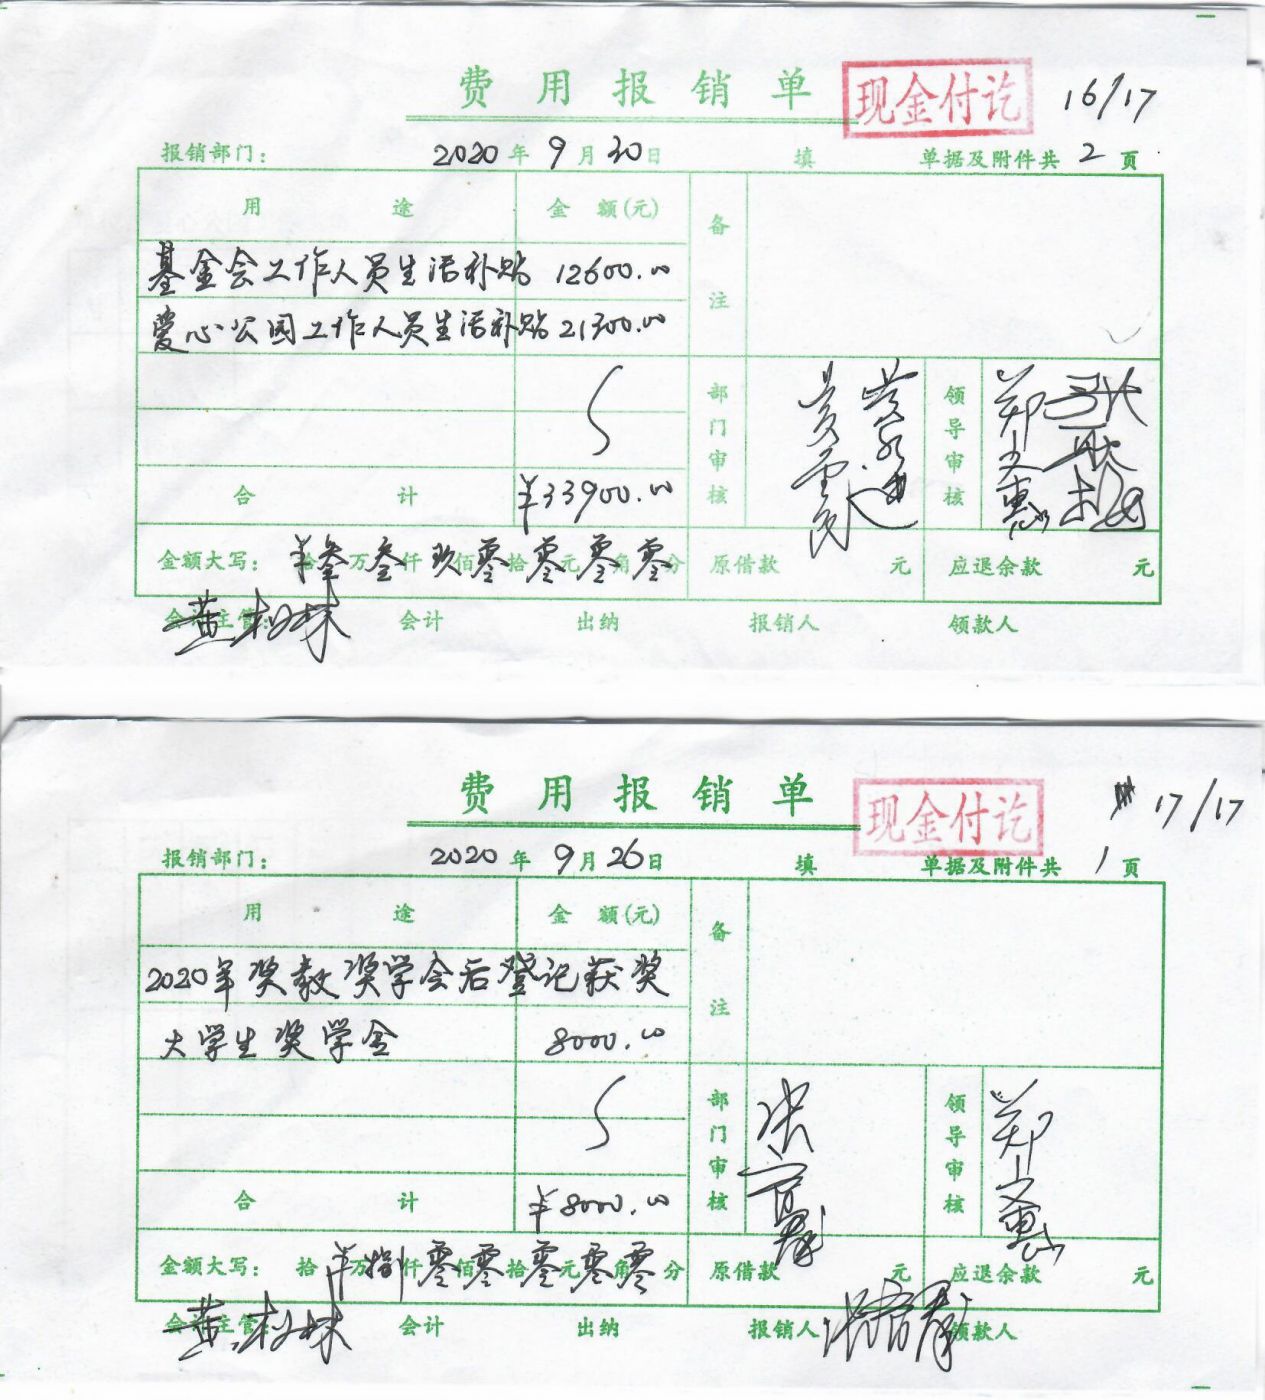 费用报销单 现金付讫 16/17
报销部门： 2020年9月30日 填 单据及附件共2页
用途 金额(元) 备注
基金会工作人员生活补贴 12600.00
爱心公园工作人员生活补贴 21300.00
部门审核 领导审核 郑文惠
合计 ￥33900.00
金额大写： ￥叁万叁仟玖佰零拾零元零角零分 原借款 元 应退余款 元
会计主管： 黄树林 会计 出纳 报销人 领款人
费用报销单 现金付讫 17/17
报销部门： 2020年9月26日 填 单据及附件共1页
用途 金额(元) 备注
2020年奖教奖学会后登记获奖
大学生奖学金 8000.00
部门审核 领导审核 郑文惠
合计 ￥8000.00
金额大写： 拾￥万捌仟零佰零拾零元零角零分 原借款 元 应退余款 元
会计主管： 黄树林 会计 出纳 报销人 领款人